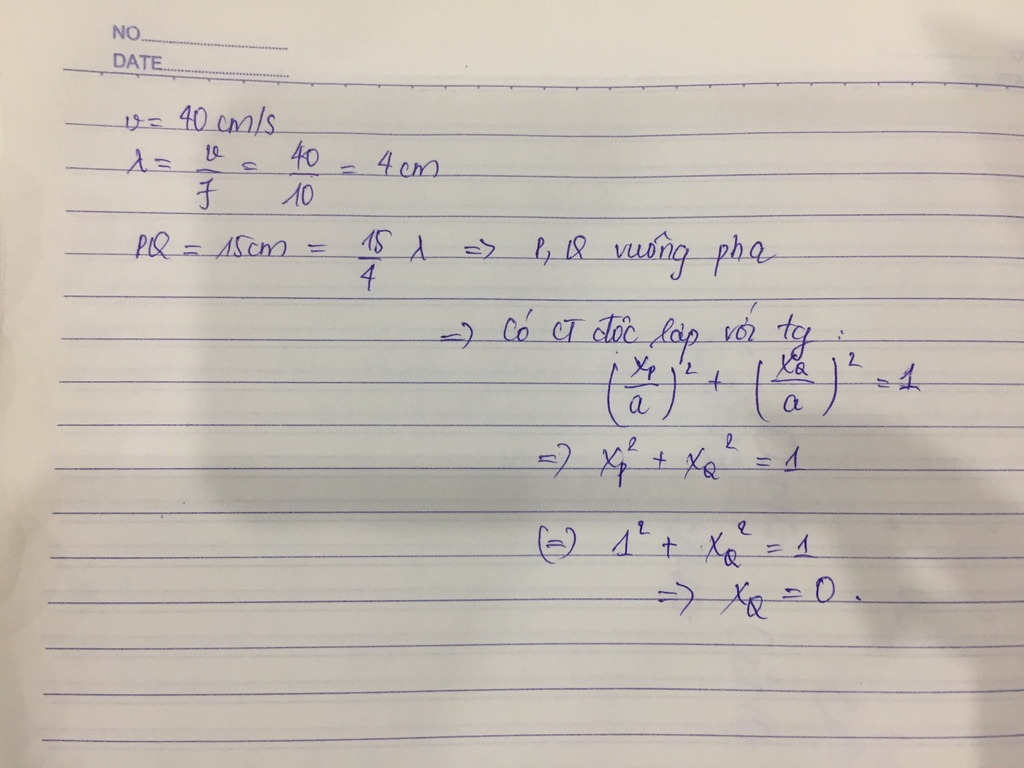 NO
DATE
v = 40 cm/s
λ = v/f = 40/10 = 4 cm
PQ = 15cm = 15/4 λ => P, Q vuông pha
=> Có CT độc lập với tg :
(xP/a)² + (xQ/a)² = 1
=> xP² + xQ² = 1
(=) 1² + xQ² = 1
=> xQ = 0.